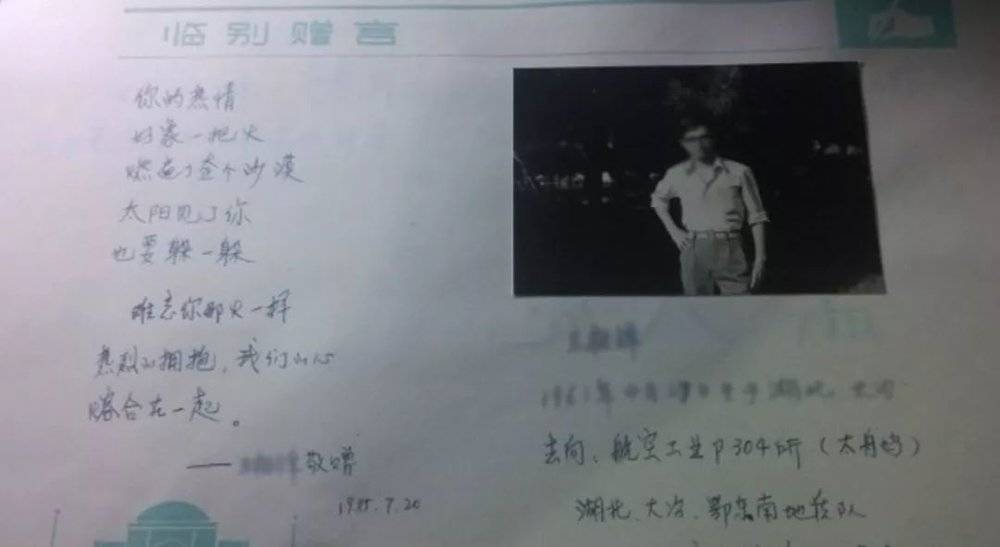 临别赠言
你的热情
好象一把火
燃色了整个沙漠
太阳见了你
也要躲一躲
难忘你那火一样
热烈的拥抱，我们的心
熔合在一起。
—— 敬赠
1985.7.20
1961年 生于湖北
去向、航空工业部304所（太舟坞）
湖北、大冶、鄂东南地质队